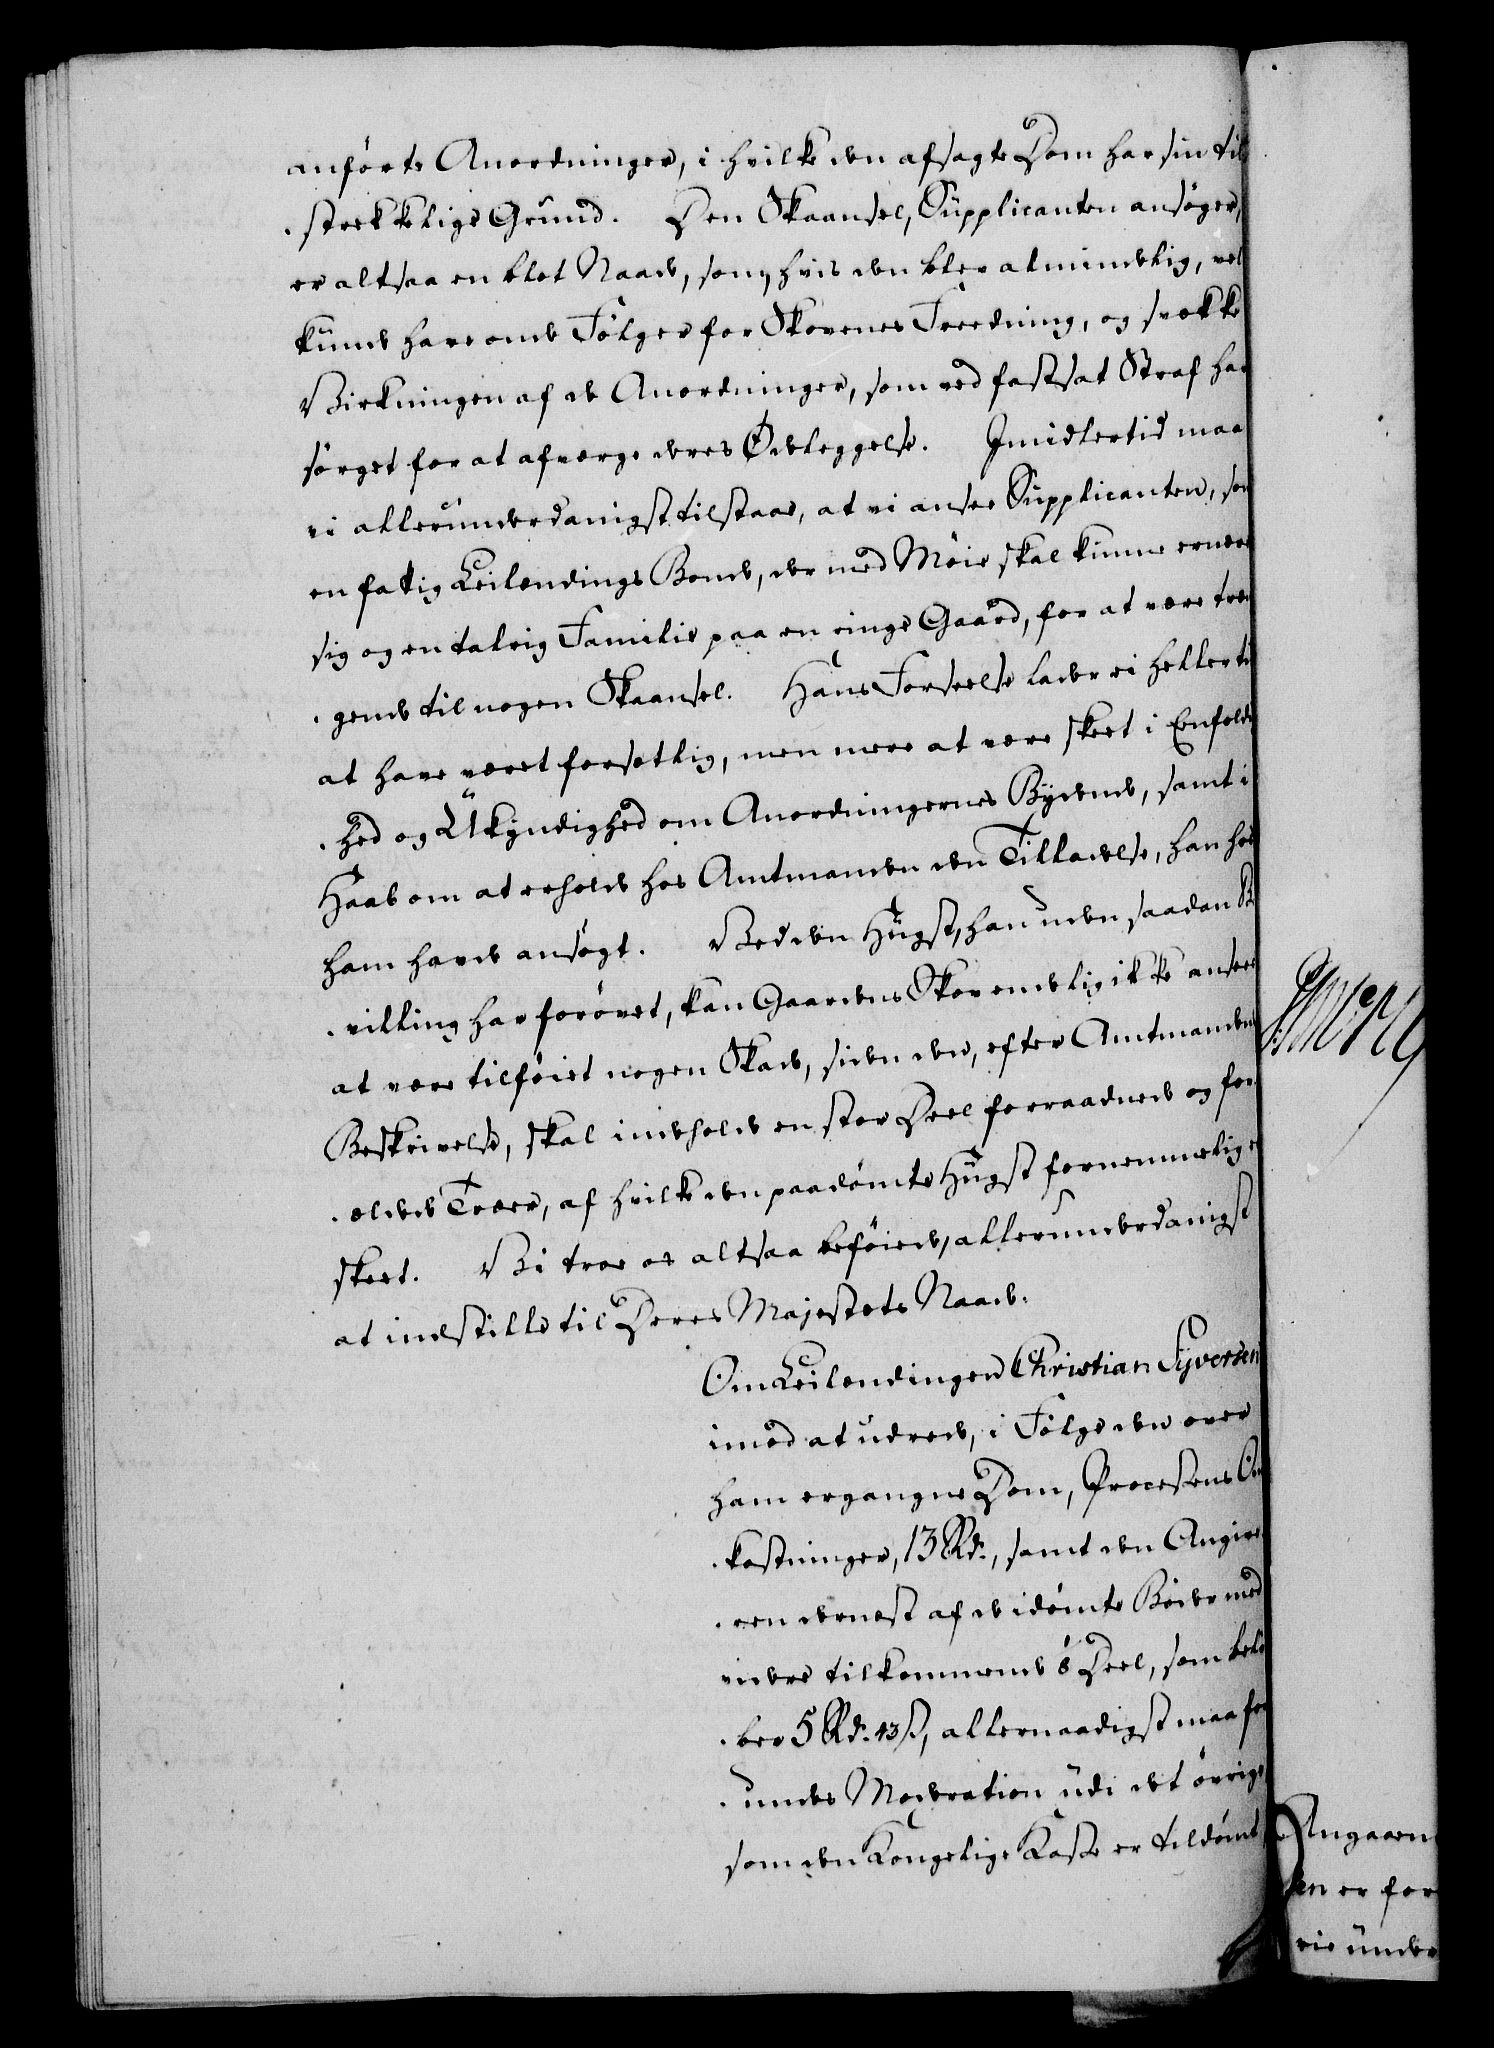 anførte Anordninger, i hvilke den afsagte Dom har sin til
strekkelige Grund. Den Skaansel, Supplicanten ansøger,
er altsaa en blot Naade, som, hvis den blev almindelig, vel
kunde have onde Følger for Skovenes Freedning, og svække
Virkningen af de Anordninger, som ved fastsat Straf har
sørget for at afværge deres Ødeleggelse. Imidlertid maa
vi allerunderdanigst tilstaae, at vi ansee Supplicanten, som
en fattig Leilendings Bonde, der med Møie skal kunne ernære
sig og en talrig Familie paa en ringe Gaard, for at være træn
gende til nogen Skaansel. Hans Forseelse lader ei heller til
at have været forsetlig, men mere at være skeet i Eenfoldig
hed og Ukyndighed om Anordningernes Bydende, samt i
Haab om at erholde hos Amtmanden den Tilladelse, han hos
ham havde ansøgt. Ved den Hugst, han uden saadan Be
villing har forøvet, kan Gaardens Skov endelig ikke ansees
at være tilføiet nogen Skade, siden den, efter Amtmandens
Beskrivelse, skal indeholde en stor Deel forraadnede og for
ældede Træer, af hvilke den paadømte Hugst fornemmelig er
skeet. Vi troe os altsaa beføiede, allerunderdanigst
at indstille til Deres Majestets Naade.
Om Leilendingen Christian Syversen
imod at udrede, i Følge den over
ham ergangne Dom, Processens Om
kostninger, 13 Rd., samt den Angive
ren dernæst af de idømte Bøder med
videre tilkommende ⅓ Deel, som belø
ber 5 Rd. 43 s, allernaadigst maa for
undes Moderation udi det øvrige
som den Kongelige Kasse er tildømt
Angaaen
en er for
rie under